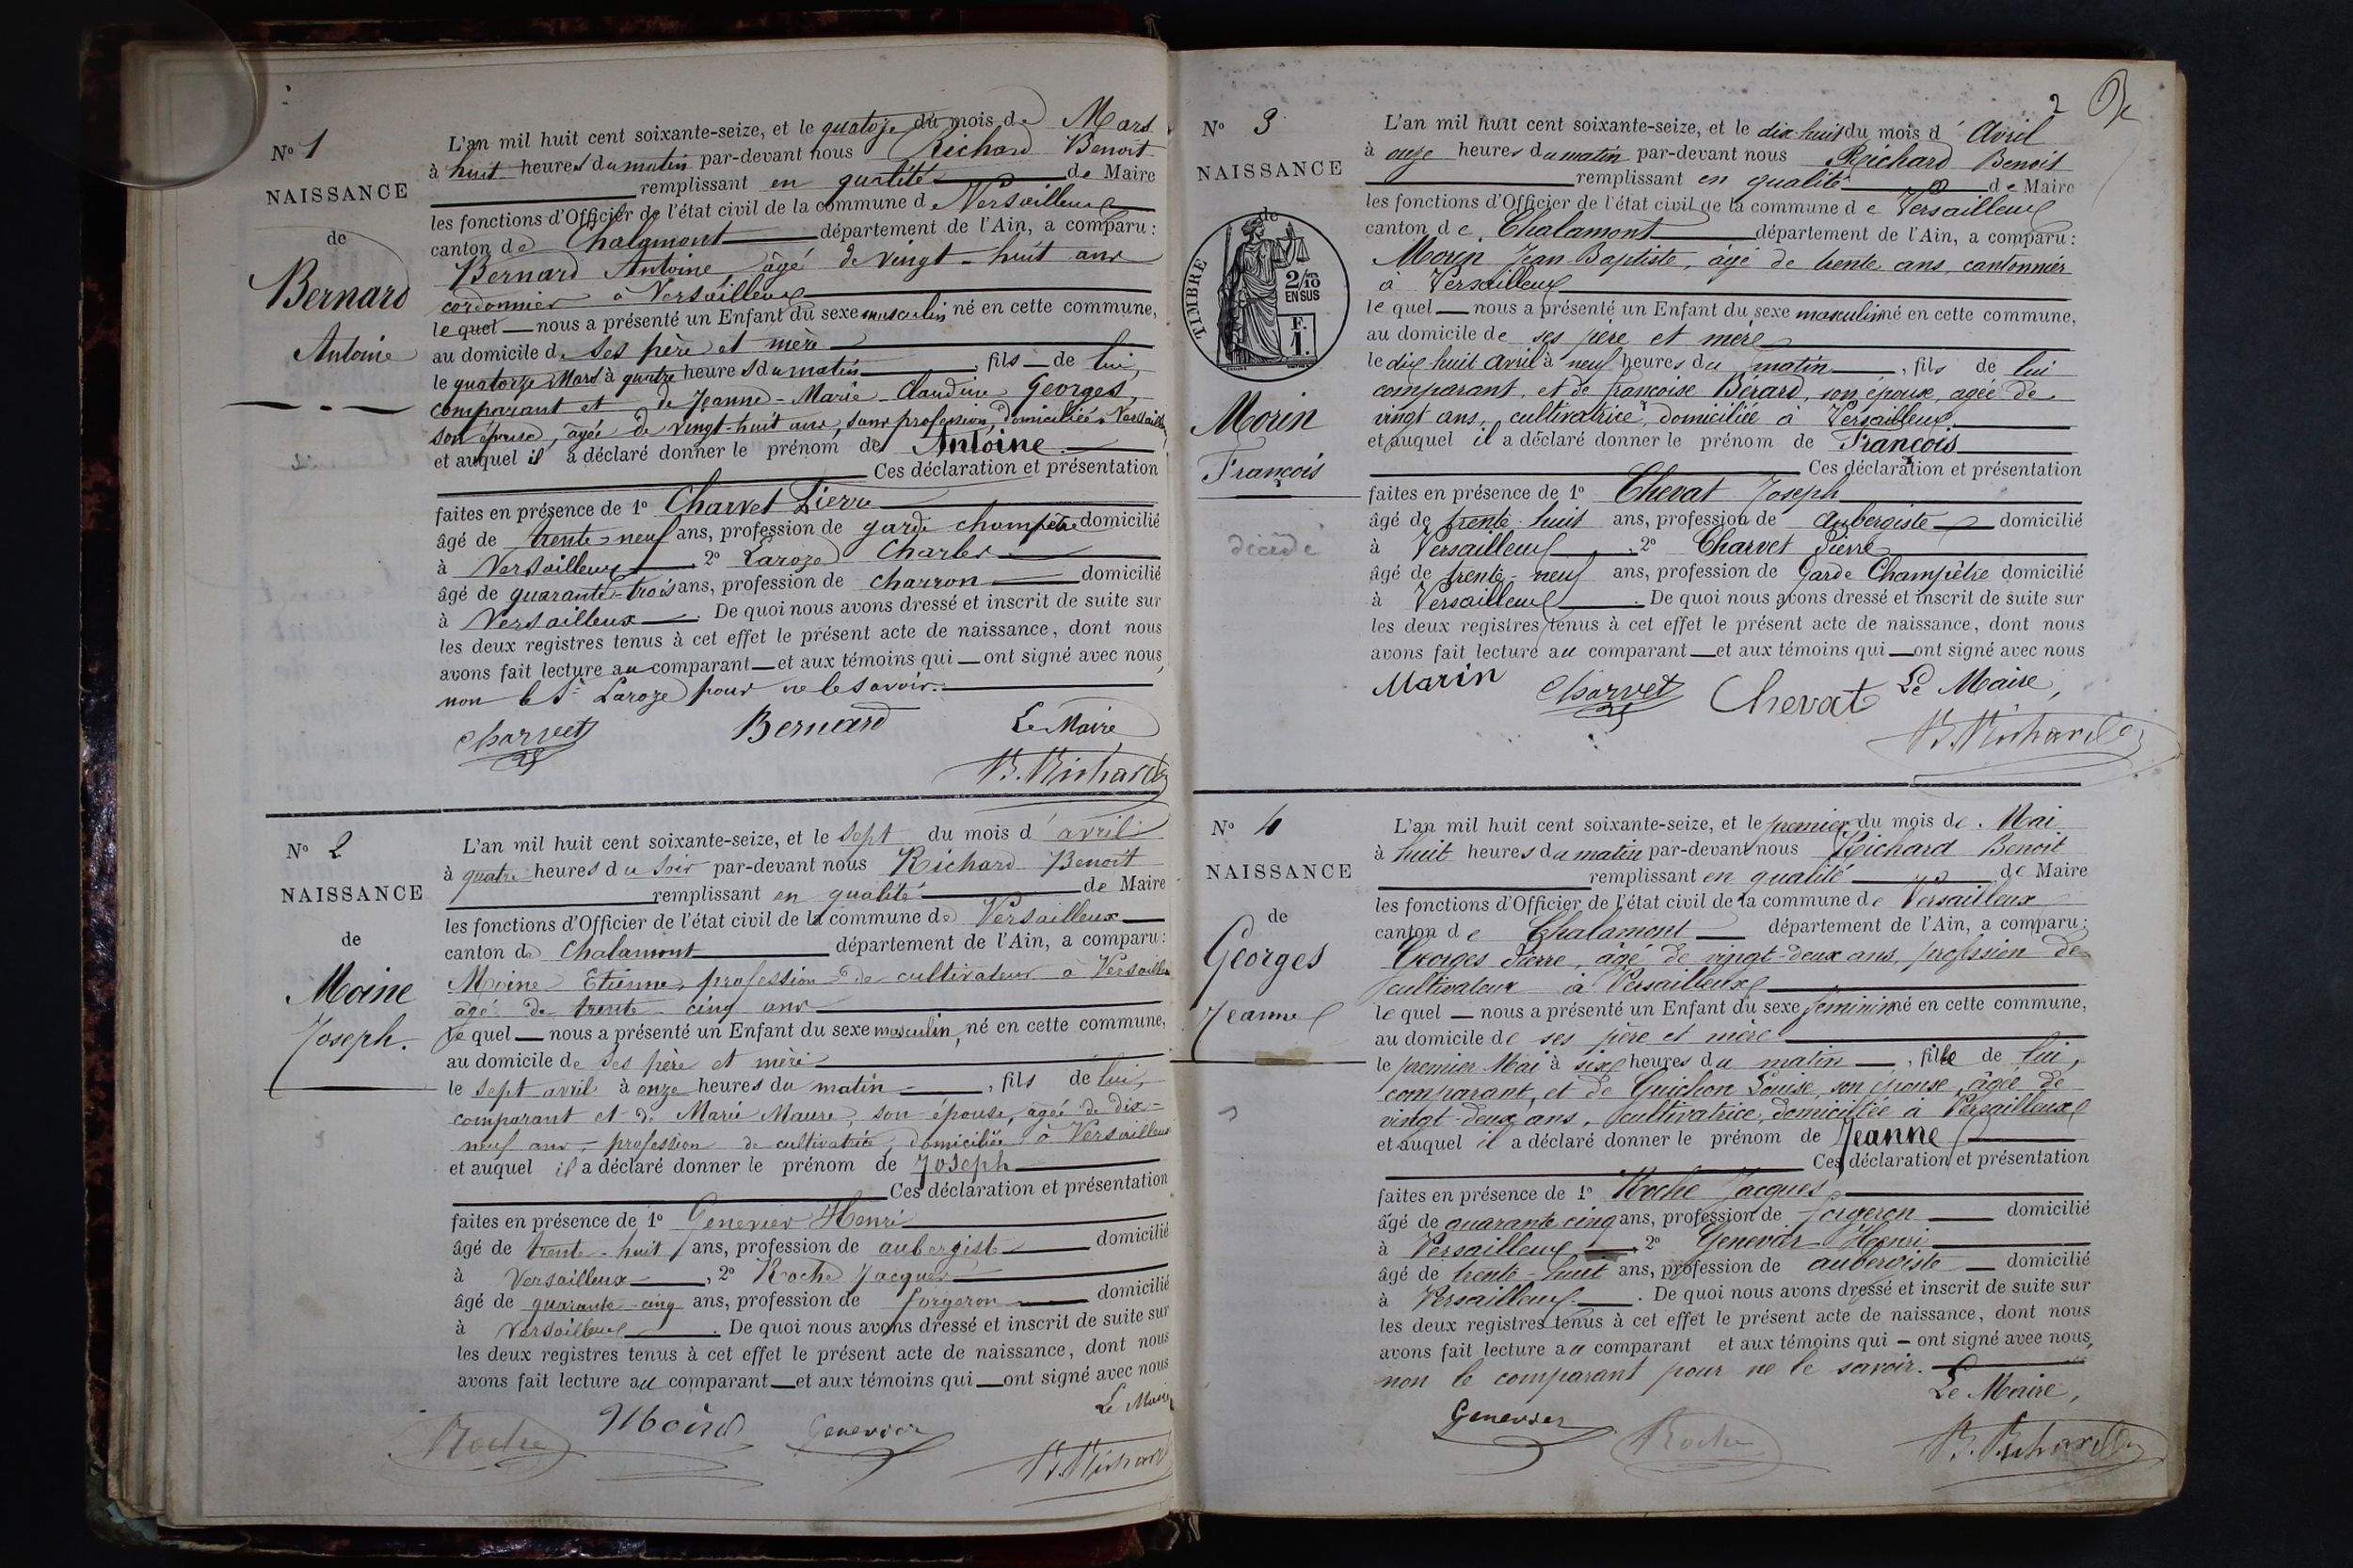 N° 1
NAISSANCE
de
Bernard
Antoine
L'an mil huit cent soixante-seize, et le quatorze du mois de Mars
à huit heures du matin par-devant nous Richard Benoit
remplissant en qualité de Maire
les fonctions d'Officier de l'état civil de la commune de Versailleux
canton de Chalamont département de l'Ain, a comparu :
Bernard Antoine, âgé de vingt-huit ans
cordonnier à Versailleux
lequel nous a présenté un Enfant du sexe masculin né en cette commune,
au domicile de ses père et mère
le quatorze Mars à quatre heures du matin, fils de lui,
comparant et de Jeanne-Marie-Claudine Georges,
son épouse, âgée de vingt-huit ans, sans profession, domiciliée à Versailleux,
et auquel il a déclaré donner le prénom de Antoine
Ces déclaration et présentation
faites en présence de 1° Charvet Pierre
âgé de trente-neuf ans, profession de garde champêtre domicilié
à Versailleux, 2° Laroze Charles
âgé de quarante-trois ans, profession de charron domicilié
à Versailleux. De quoi nous avons dressé et inscrit de suite sur
les deux registres tenus à cet effet le présent acte de naissance, dont nous
avons fait lecture au comparant et aux témoins qui ont signé avec nous,
non le Sr Laroze pour ne le savoir.
Charvet Bernard Le Maire
B. Richard
N° 2
NAISSANCE
de
Moine
Joseph.
L'an mil huit cent soixante-seize, et le sept du mois d'avril
à quatre heures du soir par-devant nous Richard Benoit
remplissant en qualité de Maire
les fonctions d'Officier de l'état civil de la commune de Versailleux
canton de Chalamont département de l'Ain, a comparu :
Moine Etienne, profession de cultivateur à Versailleux
âgé de trente-cinq ans
lequel nous a présenté un Enfant du sexe masculin, né en cette commune,
au domicile de ses père et mère
le sept avril à onze heures du matin, fils de lui,
comparant et de Marie Maure, son épouse, âgée de dix-
neuf ans, profession de cultivatrice, domiciliée à Versailleux
et auquel il a déclaré donner le prénom de Joseph
Ces déclaration et présentation
faites en présence de 1° Genevier Henri
âgé de trente-huit ans, profession de aubergiste domicilié
à Versailleux, 2° Roche Jacques
âgé de quarante-cinq ans, profession de forgeron domicilié
à Versailleux. De quoi nous avons dressé et inscrit de suite sur
les deux registres tenus à cet effet le présent acte de naissance, dont nous
avons fait lecture au comparant et aux témoins qui ont signé avec nous
Le Maire
Roche Moine Genevier
B. Richard
2
N° 3
NAISSANCE
de
TIMBRE
2/10
EN SUS
F.
1.
Morin
François
décédé
L'an mil huit cent soixante-seize, et le dix-huit du mois d'Avril
à onze heures du matin par-devant nous Richard Benoit
remplissant en qualité de Maire
les fonctions d'Officier de l'état civil de la commune de Versailleux
canton de Chalamont département de l'Ain, a comparu :
Morin Jean Baptiste, âgé de trente ans, cantonnier
à Versailleux
lequel nous a présenté un Enfant du sexe masculin né en cette commune,
au domicile de ses père et mère
le dix huit Avril à neuf heures du matin, fils de lui
comparant, et de françoise Bérard, son épouse, agée de
vingt ans, cultivatrice, domiciliée à Versailleux
et auquel il a déclaré donner le prénom de François
Ces déclaration et présentation
faites en présence de 1° Chevat Joseph
âgé de trente-huit ans, profession de Aubergiste domicilié
à Versailleux, 2° Charvet Pierre
âgé de trente-neuf ans, profession de Garde Champêtre domicilié
à Versailleux. De quoi nous avons dressé et inscrit de suite sur
les deux registres tenus à cet effet le présent acte de naissance, dont nous
avons fait lecture au comparant et aux témoins qui ont signé avec nous
Marin Charvet Chevat Le Maire,
B. Richard
N° 4
NAISSANCE
de
Georges
Jeanne
L'an mil huit cent soixante-seize, et le premier du mois de Mai
à huit heures du matin par-devant nous Richard Benoit
remplissant en qualité de Maire
les fonctions d'Officier de l'état civil de la commune de Versailleux
canton de Chalamont département de l'Ain, a comparu :
Georges Pierre, âgé de vingt-deux ans, profession de
cultivateur à Versailleux
lequel nous a présenté un Enfant du sexe féminin né en cette commune,
au domicile de ses père et mère
le premier Mai à six heures du matin, fille de lui,
comparant, et de Guichon Louise, son épouse, âgée de
vingt-deux ans, cultivatrice, domiciliée à Versailleux
et auquel il a déclaré donner le prénom de Jeanne
Ces déclaration et présentation
faites en présence de 1° Roche Jacques,
âgé de quarante cinq ans, profession de forgeron domicilié
à Versailleux, 2° Genevier Henri
âgé de trente-huit ans, profession de aubergiste domicilié
à Versailleux. De quoi nous avons dressé et inscrit de suite sur
les deux registres tenus à cet effet le présent acte de naissance, dont nous
avons fait lecture au comparant et aux témoins qui ont signé avec nous,
non le comparant pour ne le savoir.
Le Maire,
Genevier Roche B. Richard